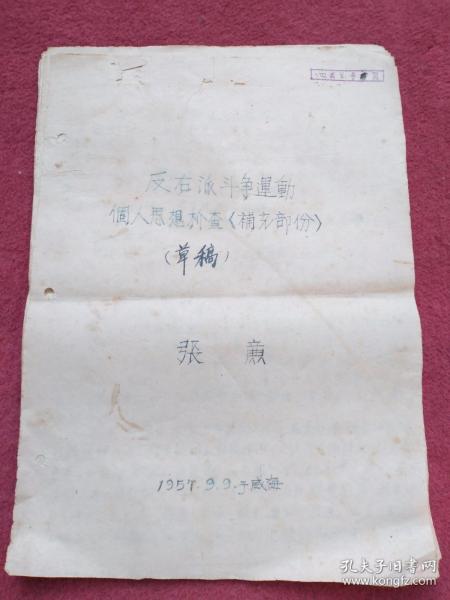 反右派斗争運動
個人思想检查《補充部份》
(草稿)
張 廉
1957.9.9.于威海
孔夫子旧书网
www.kongfz.com